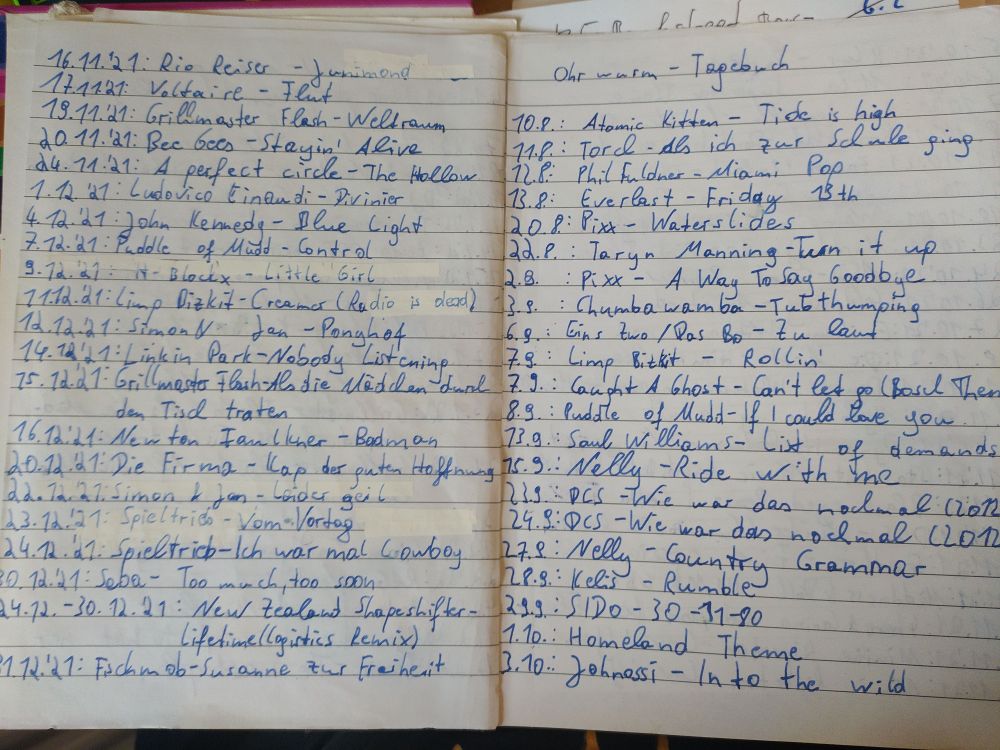 16.11.'21: Rio Reiser - Junimond
17.11.21: Voltaire - Flut
19.11.'21: Grillmaster Flash - Weltraum
20.11.'21: Bee Gees - Stayin' Alive
24.11.'21: A perfect circle - The Hollow
1.12.'21: Ludovico Einaudi - Divinier
4.12.'21: John Kennedy - Blue Light
7.12.'21: Puddle of Mudd - Control
9.12.'21: H-Blockx - Little Girl
11.12.'21: Limp Bizkit - Creamer (Radio is dead)
12.12.'21: Simon N Jan - Ponyhof
14.12.'21: Linkin Park - Nobody Listening
15.12.'21: Grillmaster Flash - Als die Mädchen durch
den Tisch traten
16.12.'21: Newton Faulkner - Badman
20.12.'21: Die Firma - Kap der guten Hoffnung
22.12.'21: Simon & Jan - Leider geil
23.12.'21: Spieltrieb - Vom Vortag
24.12.'21: Spieltrieb - Ich war mal Cowboy
30.12.'21: Seba - Too much, too soon
24.12. - 30.12.'21: New Zealand Shapeshifter -
Lifetime (Logistics Remix)
31.12.'21: Fischmob - Susanne zur Freiheit
Ohrwurm - Tagebuch
10.8.: Atomic Kitten - Tide is high
11.8.: Torch - Als ich zur Schule ging
12.8.: Phil Fuldner - Miami Pop
13.8.: Everlast - Friday 13th
20.8.: Pixx - Waterslides
22.8.: Taryn Manning - Turn it up
2.9.: Pixx - A Way To Say Goodbye
3.9.: Chumbawamba - Tubthumping
6.9.: Eins Zwo / Das Bo - Zu laut
7.9.: Limp Bizkit - Rollin'
7.9.: Caught A Ghost - Can't let go (Bosch Them
8.9.: Puddle of Mudd - If I could love you
13.9.: Saul Williams - List of demands
15.9.: Nelly - Ride with me
23.9.: DCS - Wie war das nochmal (2012
24.9.: DCS - Wie war das nochmal (2012
27.9.: Nelly - Country Grammar
28.9.: Kelis - Rumble
29.9.: SIDO - 30-11-80
1.10.: Homeland Theme
3.10.: Johnossi - Into the wild